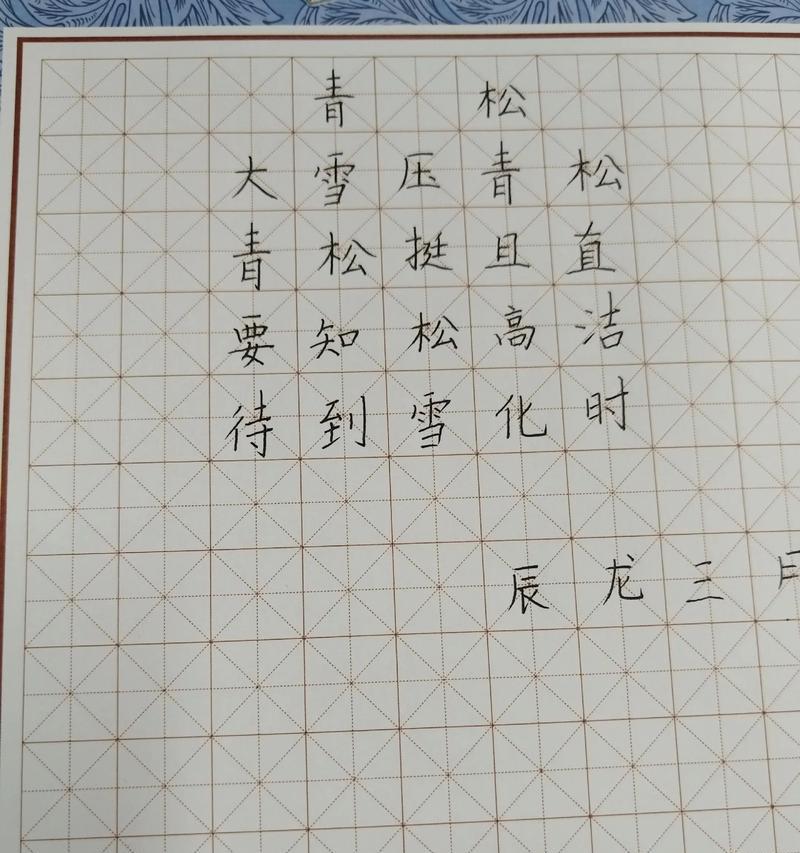 青松
大雪压青松
青松挺且直
要知松高洁
待到雪化时
辰龙三月